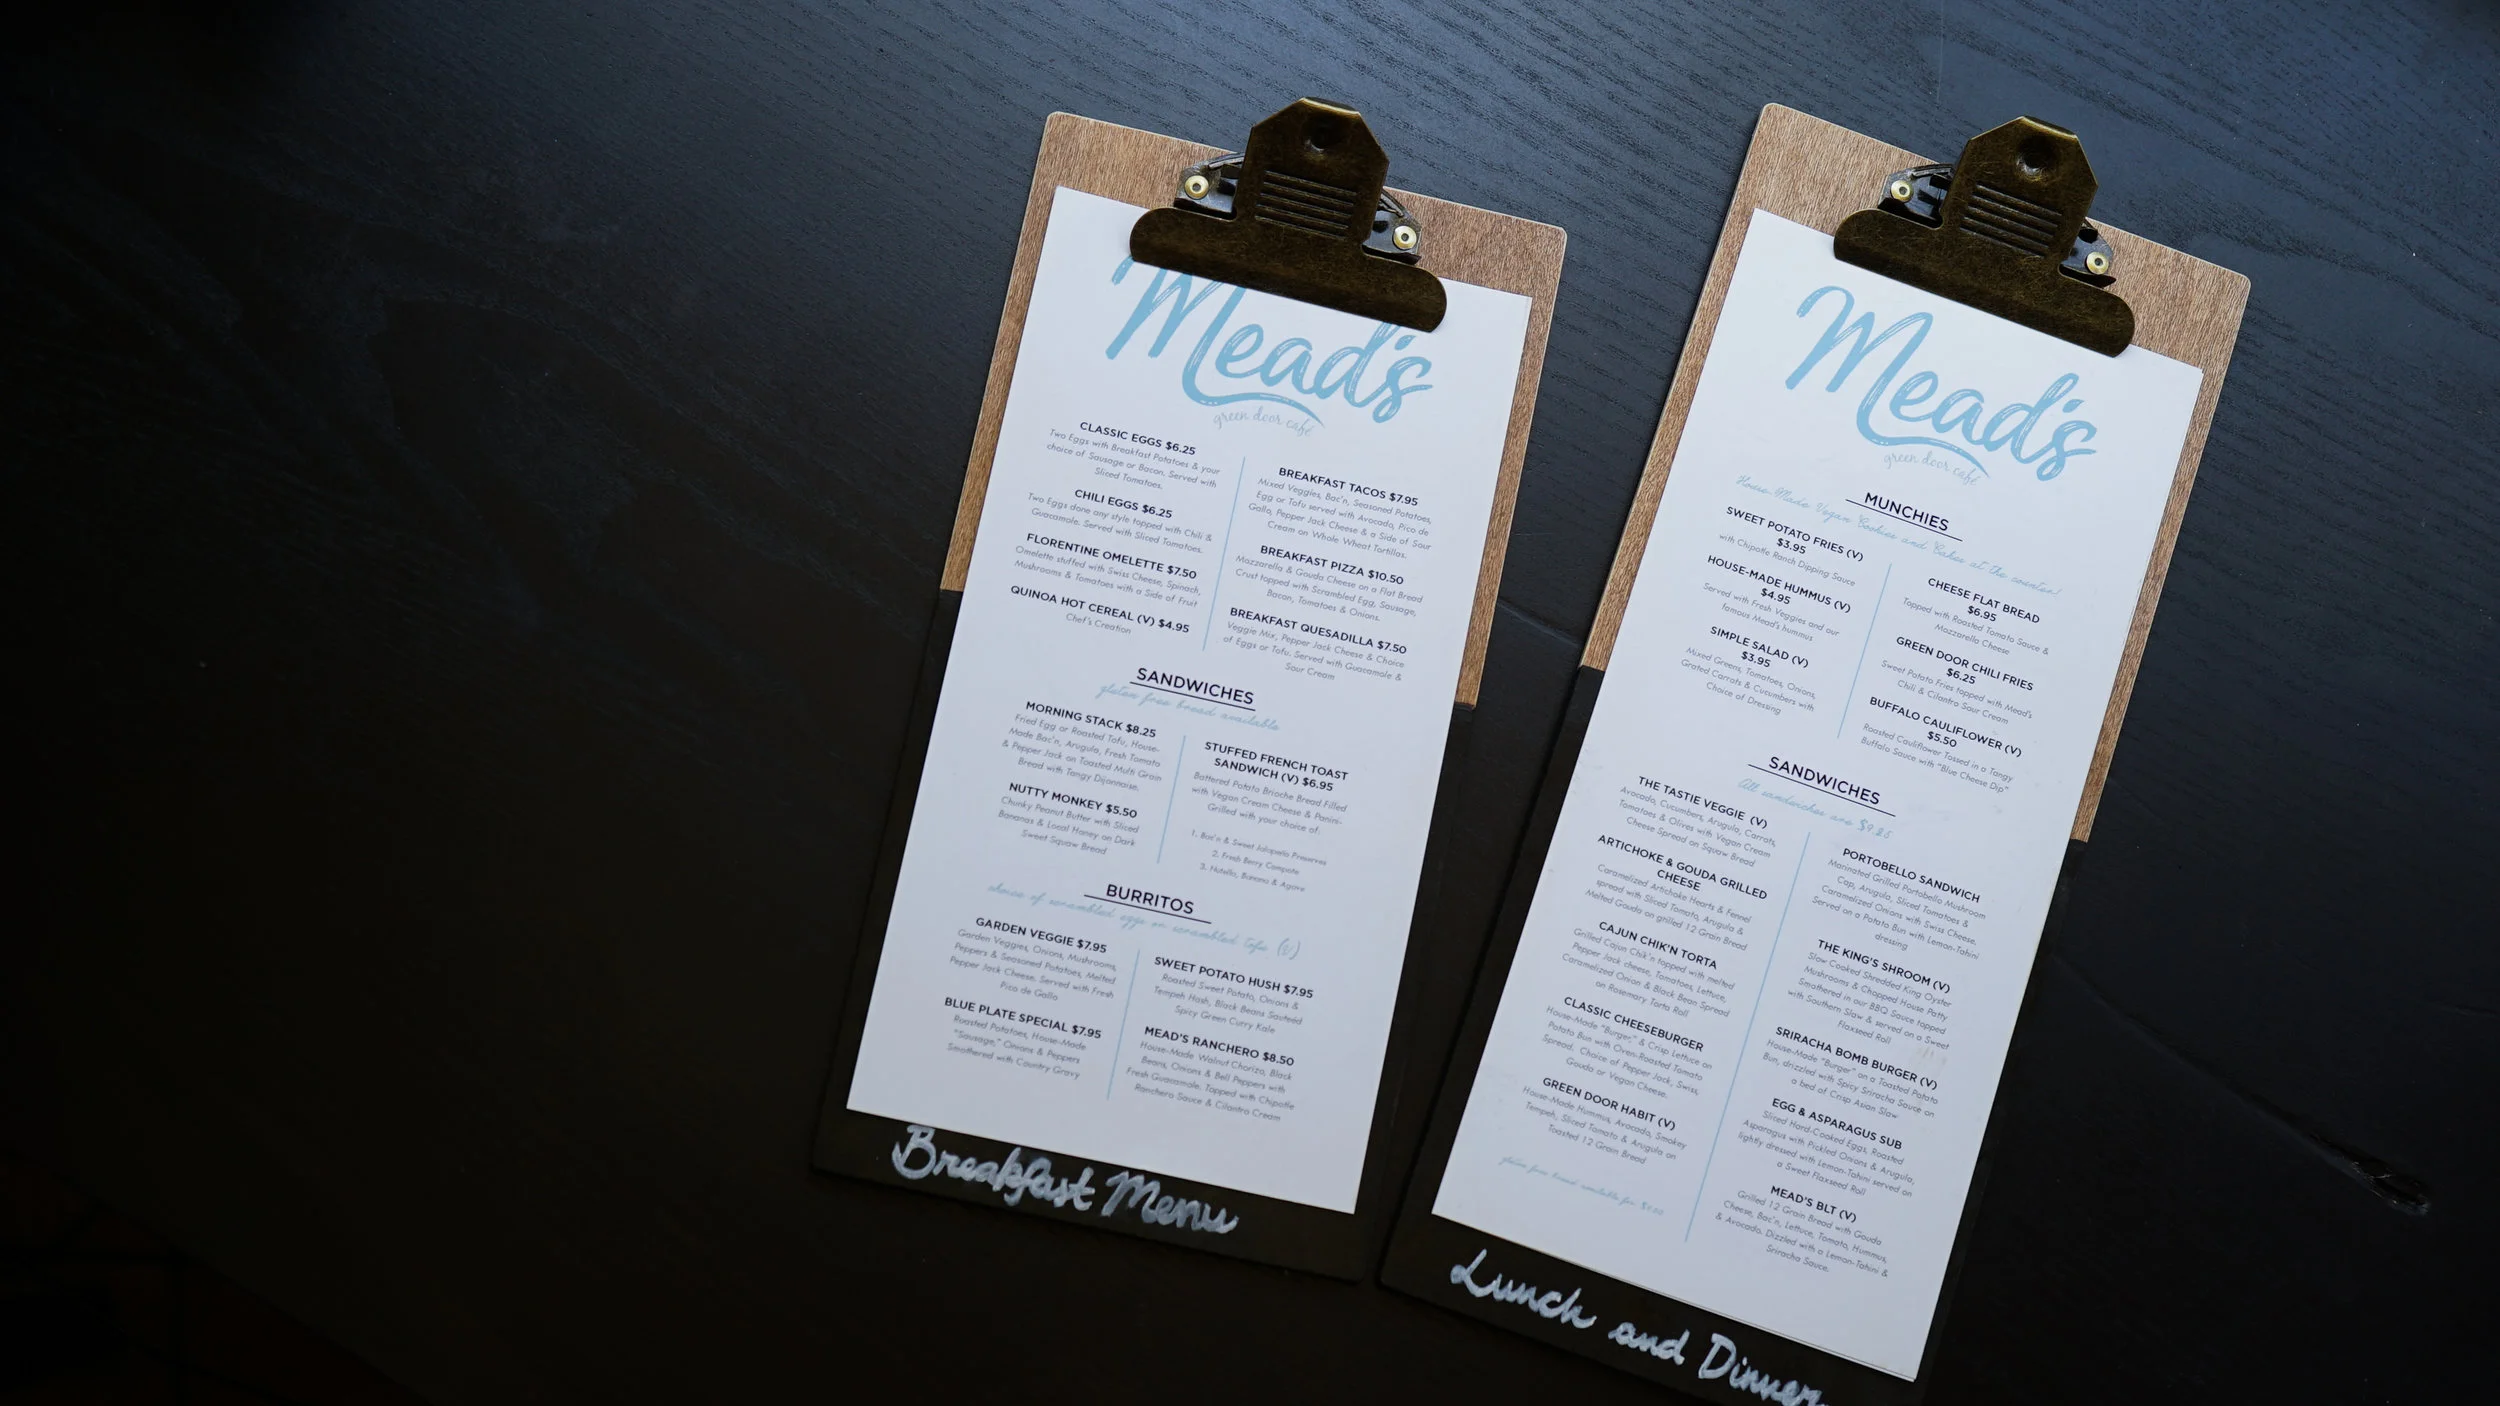 Mead's
green door café
CLASSIC EGGS $6.25
Two Eggs with Breakfast Potatoes & your
choice of Sausage or Bacon. Served with
Sliced Tomatoes.
CHILI EGGS $6.25
Two Eggs done any style topped with Chili &
Guacamole. Served with Sliced Tomatoes.
FLORENTINE OMELETTE $7.50
Omelette stuffed with Swiss Cheese, Spinach,
Mushrooms & Tomatoes with a Side of Fruit
QUINOA HOT CEREAL (V) $4.95
Chef's Creation
BREAKFAST TACOS $7.95
Mixed Veggies, Bac'n, Seasoned Potatoes,
Egg or Tofu served with Avocado, Pico de
Gallo, Pepper Jack Cheese & a Side of Sour
Cream on Whole Wheat Tortillas.
BREAKFAST PIZZA $10.50
Mozzarella & Gouda Cheese on a Flat Bread
Crust topped with Scrambled Egg, Sausage,
Bacon, Tomatoes & Onions.
BREAKFAST QUESADILLA $7.50
Veggie Mix, Pepper Jack Cheese & Choice
of Eggs or Tofu. Served with Guacamole &
Sour Cream
SANDWICHES
gluten free bread available
MORNING STACK $8.25
Fried Egg or Roasted Tofu, House-
Made Bac'n, Arugula, Fresh Tomato
& Pepper Jack on Toasted Multi Grain
Bread with Tangy Dijonnaise.
NUTTY MONKEY $5.50
Chunky Peanut Butter with Sliced
Bananas & Local Honey on Dark
Sweet Squaw Bread
STUFFED FRENCH TOAST
SANDWICH (V) $6.95
Battered Potato Brioche Bread Filled
with Vegan Cream Cheese & Panini-
Grilled with your choice of:
1. Bac'n & Sweet Jalapeño Preserves
2. Fresh Berry Compote
3. Nutella, Banana & Agave
BURRITOS
choice of scrambled eggs or scrambled tofu (v)
GARDEN VEGGIE $7.95
Garden Veggies, Onions, Mushrooms,
Peppers & Seasoned Potatoes, Melted
Pepper Jack Cheese. Served with Fresh
Pico de Gallo
BLUE PLATE SPECIAL $7.95
Roasted Potatoes, House-Made
"Sausage," Onions & Peppers
Smothered with Country Gravy
SWEET POTATO HUSH $7.95
Roasted Sweet Potato, Onions &
Tempeh Hash, Black Beans Sautéed
Spicy Green Curry Kale
MEAD'S RANCHERO $8.50
House-Made Walnut Chorizo, Black
Beans, Onions & Bell Peppers with
Fresh Guacamole. Topped with Chipotle
Ranchero Sauce & Cilantro Cream
Breakfast Menu
Mead's
green door café
MUNCHIES
House-Made Vegan Cookies and Cakes at the counter!
SWEET POTATO FRIES (V)
$3.95
with Chipotle Ranch Dipping Sauce
HOUSE-MADE HUMMUS (V)
$4.95
Served with Fresh Veggies and our
famous Mead's hummus
SIMPLE SALAD (V)
$3.95
Mixed Greens, Tomatoes, Onions,
Grated Carrots & Cucumbers with
Choice of Dressing
CHEESE FLAT BREAD
$6.95
Topped with Roasted Tomato Sauce &
Mozzarella Cheese
GREEN DOOR CHILI FRIES
$6.25
Sweet Potato Fries topped with Mead's
Chili & Cilantro Sour Cream
BUFFALO CAULIFLOWER (V)
$5.50
Roasted Cauliflower Tossed in a Tangy
Buffalo Sauce with "Blue Cheese Dip"
SANDWICHES
All sandwiches are $9.25
THE TASTIE VEGGIE (V)
Avocado, Cucumbers, Arugula, Carrots,
Tomatoes & Olives with Vegan Cream
Cheese Spread on Squaw Bread
ARTICHOKE & GOUDA GRILLED
CHEESE
Caramelized Artichoke Hearts & Fennel
spread with Sliced Tomato, Arugula &
Melted Gouda on grilled 12 Grain Bread
CAJUN CHIK'N TORTA
Grilled Cajun Chik'n topped with melted
Pepper Jack cheese, Tomatoes, Lettuce,
Caramelized Onion & Black Bean Spread
on Rosemary Torta Roll
CLASSIC CHEESEBURGER
House-Made "Burger," & Crisp Lettuce on
Potato Bun with Oven-Roasted Tomato
Spread. Choice of Pepper Jack, Swiss,
Gouda or Vegan Cheese.
GREEN DOOR HABIT (V)
House-Made Hummus, Avocado, Smokey
Tempeh, Sliced Tomato & Arugula on
Toasted 12 Grain Bread
gluten free bread available for
PORTOBELLO SANDWICH
Marinated Grilled Portobello Mushroom
Cap, Arugula, Sliced Tomatoes &
Caramelized Onions with Swiss Cheese.
Served on a Potato Bun with Lemon-Tahini
dressing
THE KING'S SHROOM (V)
Slow Cooked Shredded King Oyster
Mushrooms & Chopped House Patty
Smothered in our BBQ Sauce topped
with Southern Slaw & served on a Sweet
Flaxseed Roll
SRIRACHA BOMB BURGER (V)
House-Made "Burger" on a Toasted Potato
Bun, drizzled with Spicy Sriracha Sauce on
a bed of Crisp Asian Slaw
EGG & ASPARAGUS SUB
Sliced Hard-Cooked Eggs, Roasted
Asparagus with Pickled Onions & Arugula,
lightly dressed with Lemon-Tahini served on
a Sweet Flaxseed Roll
MEAD'S BLT (V)
Grilled 12 Grain Bread with Gouda
Cheese, Bac'n, Lettuce, Tomato, Hummus,
& Avocado. Dizzled with a Lemon-Tahini &
Sriracha Sauce.
Lunch and Dinner